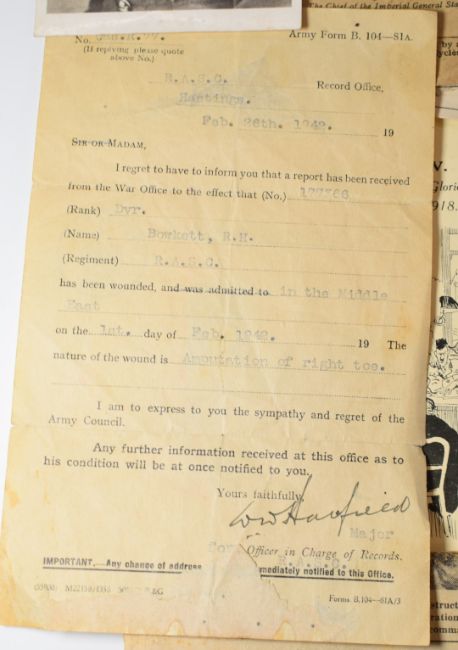 The Chief of the Imperial General Sta
No.
Army Form B. 104—81A.
(If replying please quote
above No.)
R.A.S.C.
Record Office,
Hastings.
Feb. 26th. 1942. 19
SIR OR MADAM,
I regret to have to inform you that a report has been received
from the War Office to the effect that (No.)
(Rank) Dvr.
(Name) Bowkett, R.H.
(Regiment) R.A.S.C.
has been wounded, and was admitted to in the Middle
East
on the 1st. day of Feb. 1942. 19 The
nature of the wound is Amputation of right toe.
I am to express to you the sympathy and regret of the
Army Council.
Any further information received at this office as to
his condition will be at once notified to you.
Yours faithfully,
Major
Officer in Charge of Records.
IMPORTANT.—Any change of address
mmediately notified to this Office.
Forms B.104—81A/3
V.
Glorie
918.
struct
ration
omm